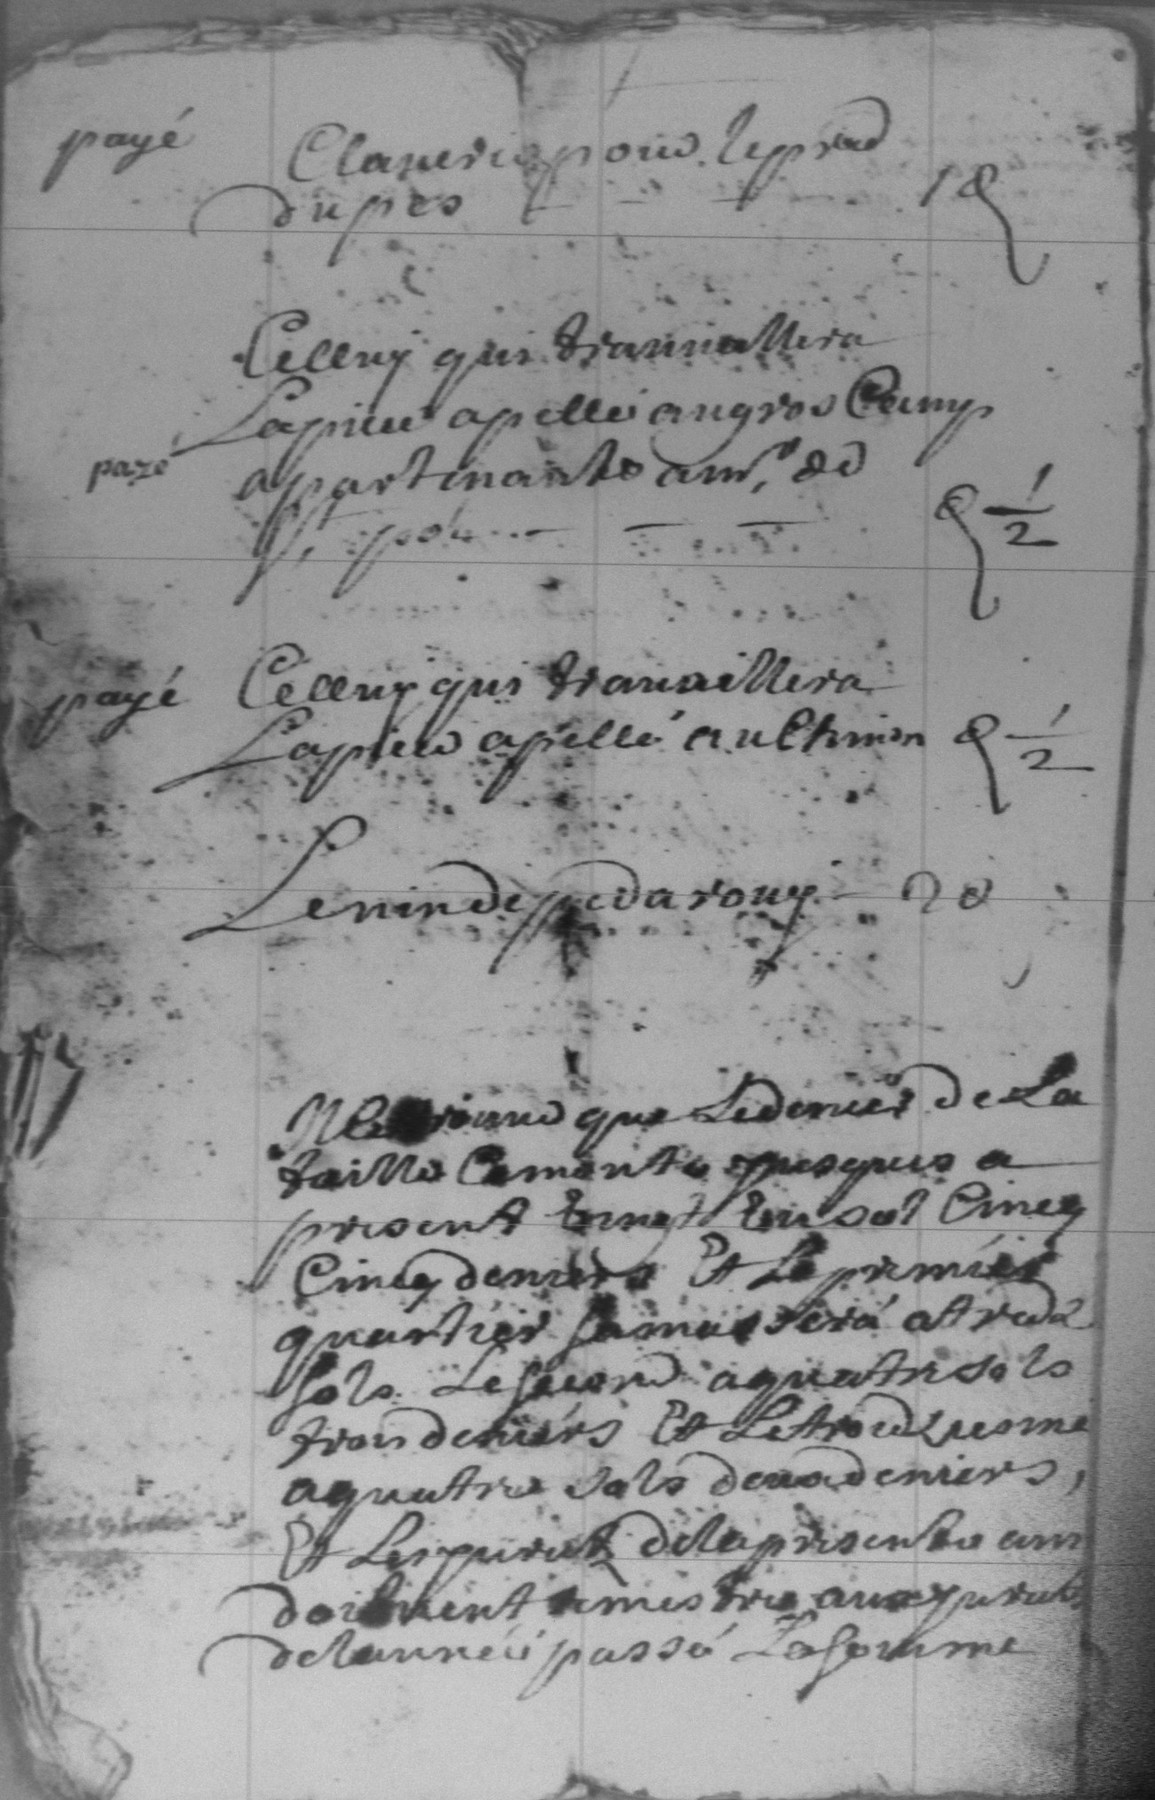 payé Claverie pour le prad
du pes - - - 1 δ
Celluy qui travaillera
La piece apellé au gros Camp
payé appartenante a mr. de
pou - - - δ 1/2
payé Celluy qui travaillera
La piece apellé au δ 1/2
Le vin de pedarouy - 2 δ
Il que Le denier de La
taille Cy monte jusques a
present Cincq
Cincq deniers Et Le premier
quartier sera a trois
sols Le second a quatre sols
trois deniers Et Le troisiesme
a quatre sols deux deniers,
Et Les jurats de la presente ann
doivent remettre aux jurats
de l'année passé La somme